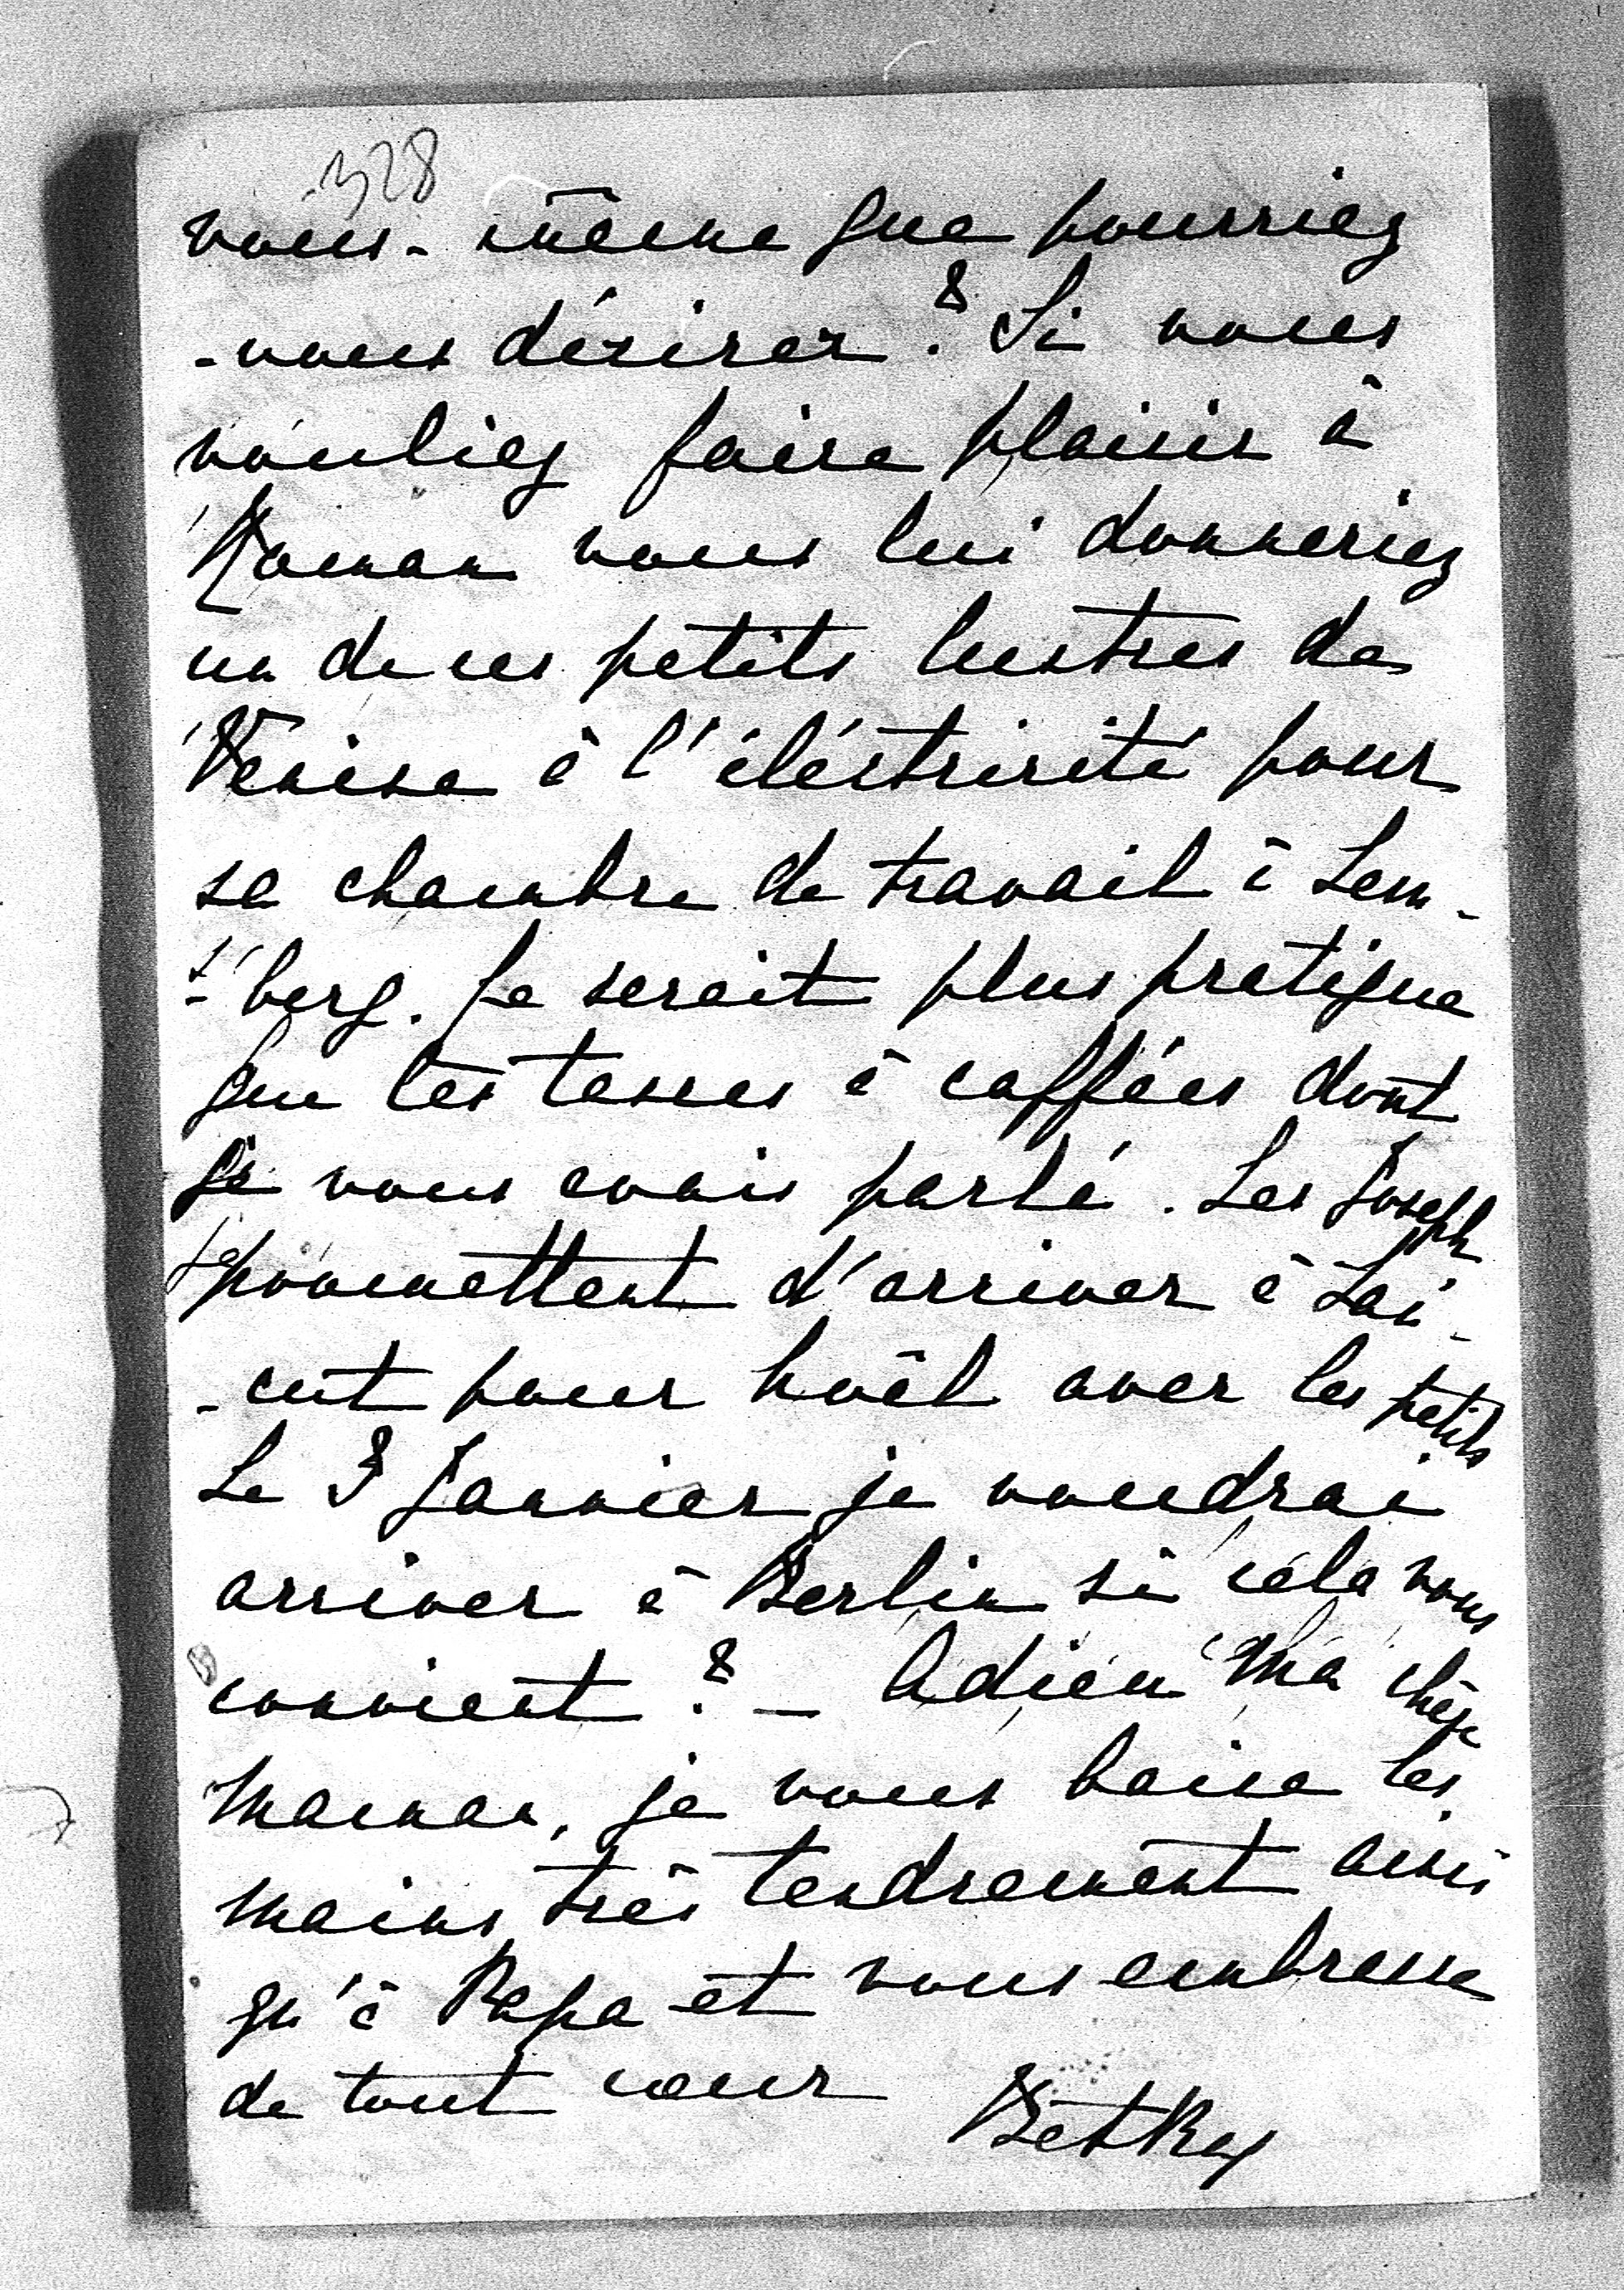 328
vous-même que pourriez
-vous désirer? Si vous
vouliez faire plaisir à
Roman vous lui donneriez
un de ces petits lustres de
Venise à l'éléctricité pour
sa chambre de travail à Lem-
-berg. Ça serait plus pratique
que les tasses à caffées dont
je vous avais parlé. Les Joseph
promettent d'arriver à Lań-
-cut pour Noël avec les petits
Le 3 Janvier je voudrai
arriver à Berlin si cela vous
convient? — Adieu Ma chère
Maman, je vous baise les
mains très tendrement ainsi
qu'à Papa et vous embrasse
de tout cœur
Betka